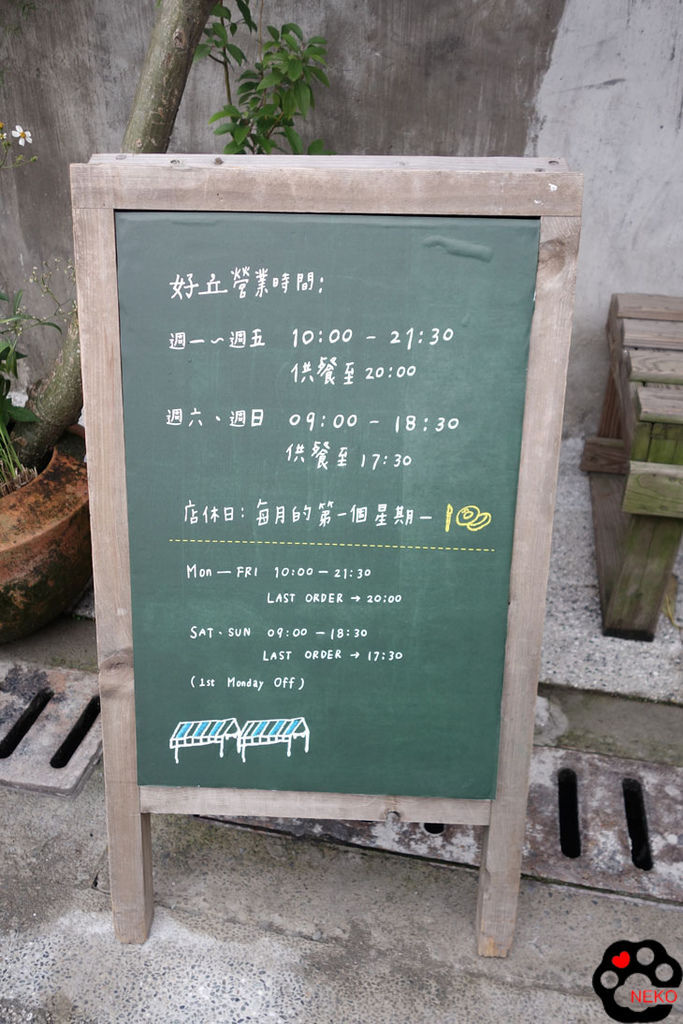 好丘營業時間:
週一~週五 10:00 - 21:30
供餐至 20:00
週六、週日 09:00 - 18:30
供餐至 17:30
店休日: 每月的第一個星期一
Mon — FRI 10:00 — 21:30
LAST ORDER → 20:00
SAT、SUN 09:00 — 18:30
LAST ORDER → 17:30
(1st Monday Off)
NEKO